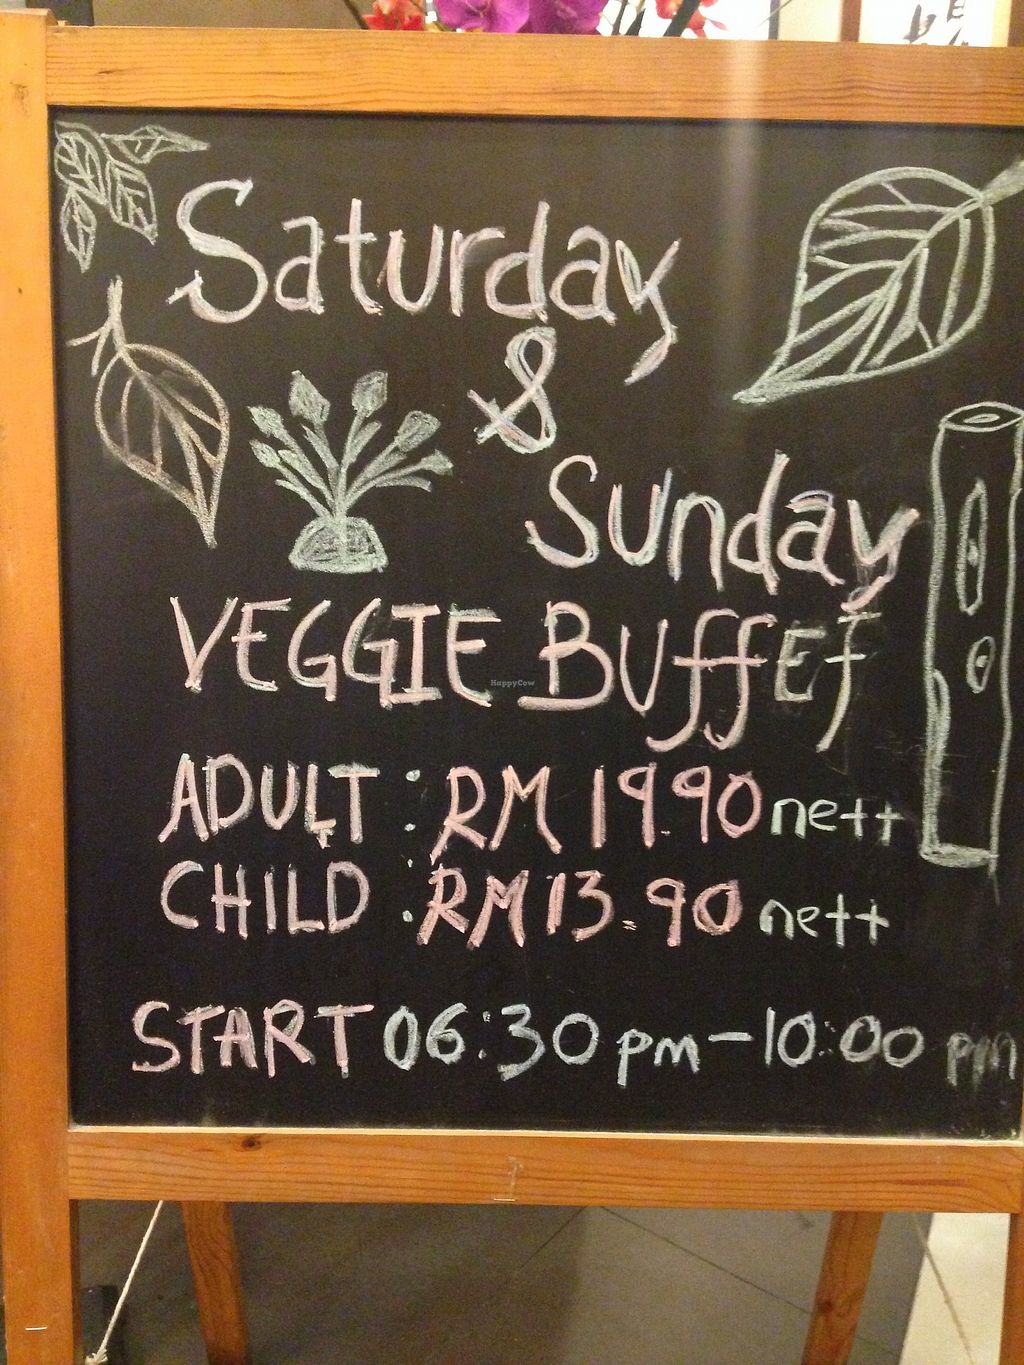 Saturday
&
Sunday
VEGGIE BUffEt
HappyCow
ADULT : RM 19.90 nett
CHILD : RM 13.90 nett
START 06:30 pm - 10:00 pm